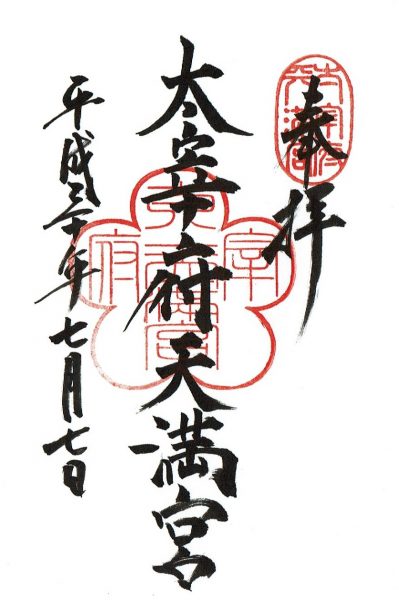 奉拝
太宰府天満宮
平成三十年七月七日
太宰府天満宮